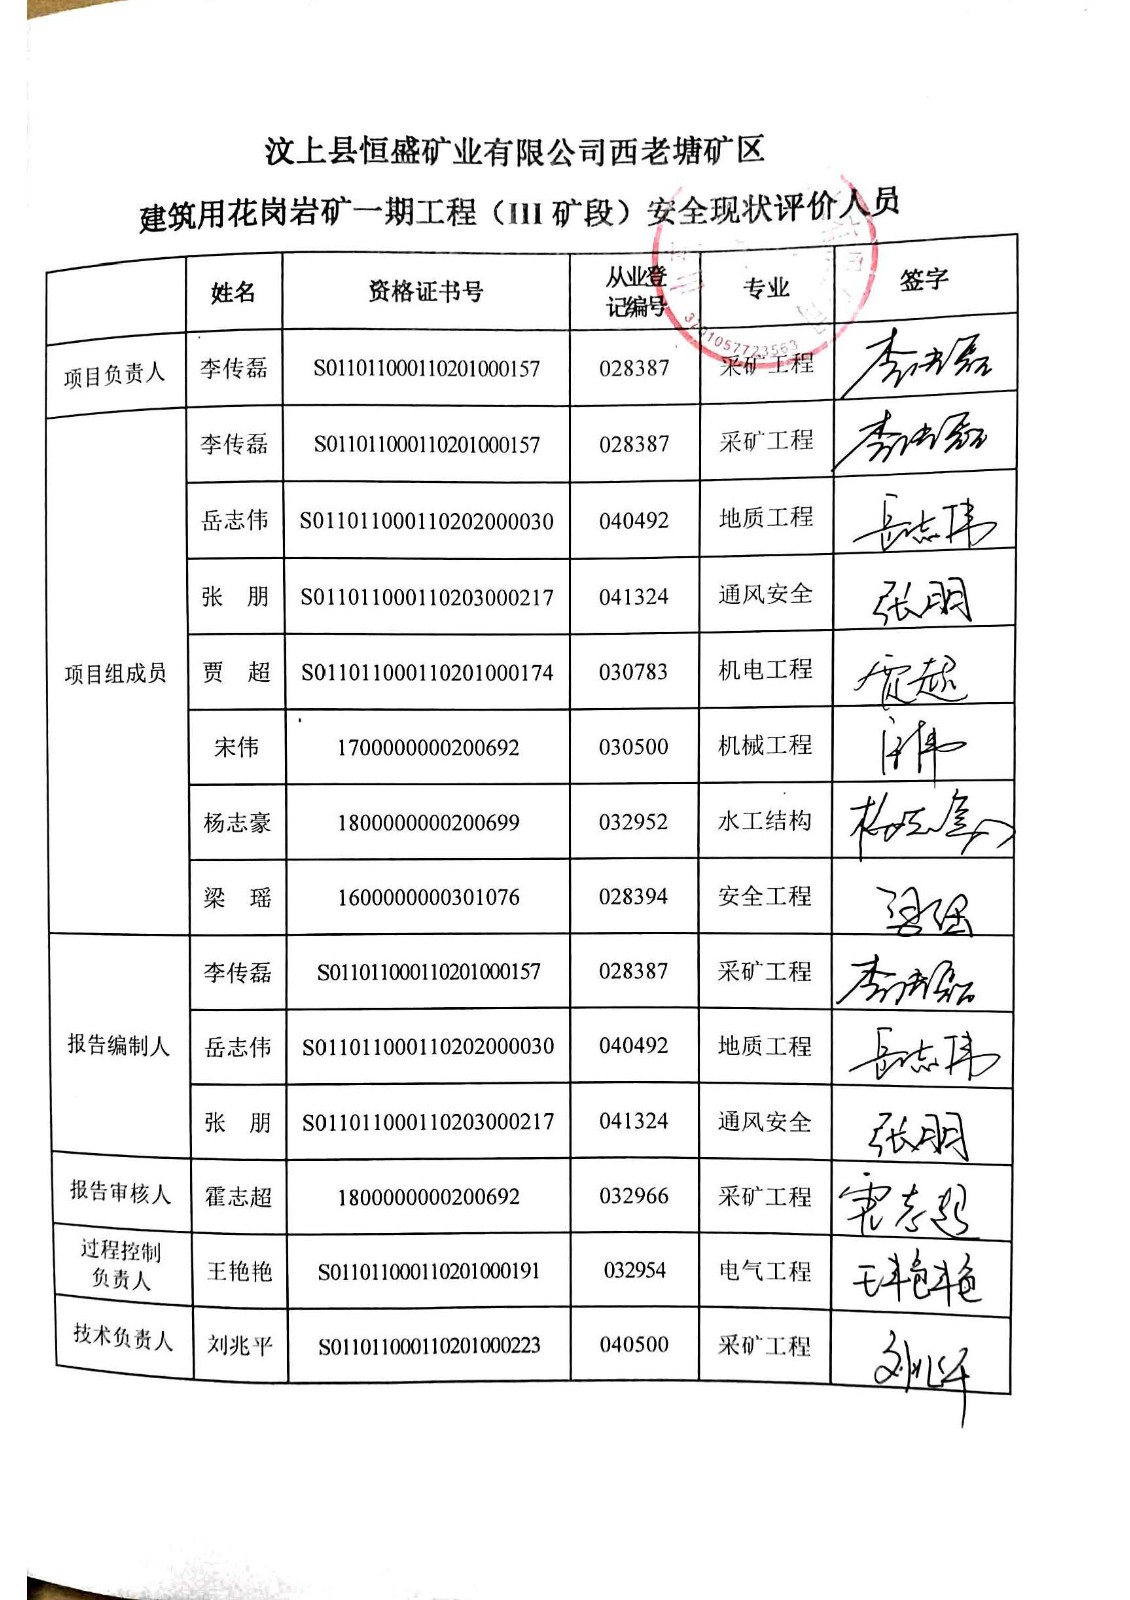 汶上县恒盛矿业有限公司西老塘矿区
建筑用花岗岩矿一期工程（III 矿段）安全现状评价人员
姓名 资格证书号 从业登记编号 专业 签字
项目负责人 李传磊 S011011000110201000157 028387 采矿工程 李传磊
项目组成员 李传磊 S011011000110201000157 028387 采矿工程 李传磊
岳志伟 S011011000110202000030 040492 地质工程 岳志伟
张 朋 S011011000110203000217 041324 通风安全 张朋
贾 超 S011011000110201000174 030783 机电工程 贾超
宋伟 1700000000200692 030500 机械工程 宋伟
杨志豪 1800000000200699 032952 水工结构 杨志豪
梁 瑶 1600000000301076 028394 安全工程 梁瑶
报告编制人 李传磊 S011011000110201000157 028387 采矿工程 李传磊
岳志伟 S011011000110202000030 040492 地质工程 岳志伟
张 朋 S011011000110203000217 041324 通风安全 张朋
报告审核人 霍志超 1800000000200692 032966 采矿工程 霍志超
过程控制负责人 王艳艳 S011011000110201000191 032954 电气工程 王艳艳
技术负责人 刘兆平 S011011000110201000223 040500 采矿工程 刘兆平
3701057723563